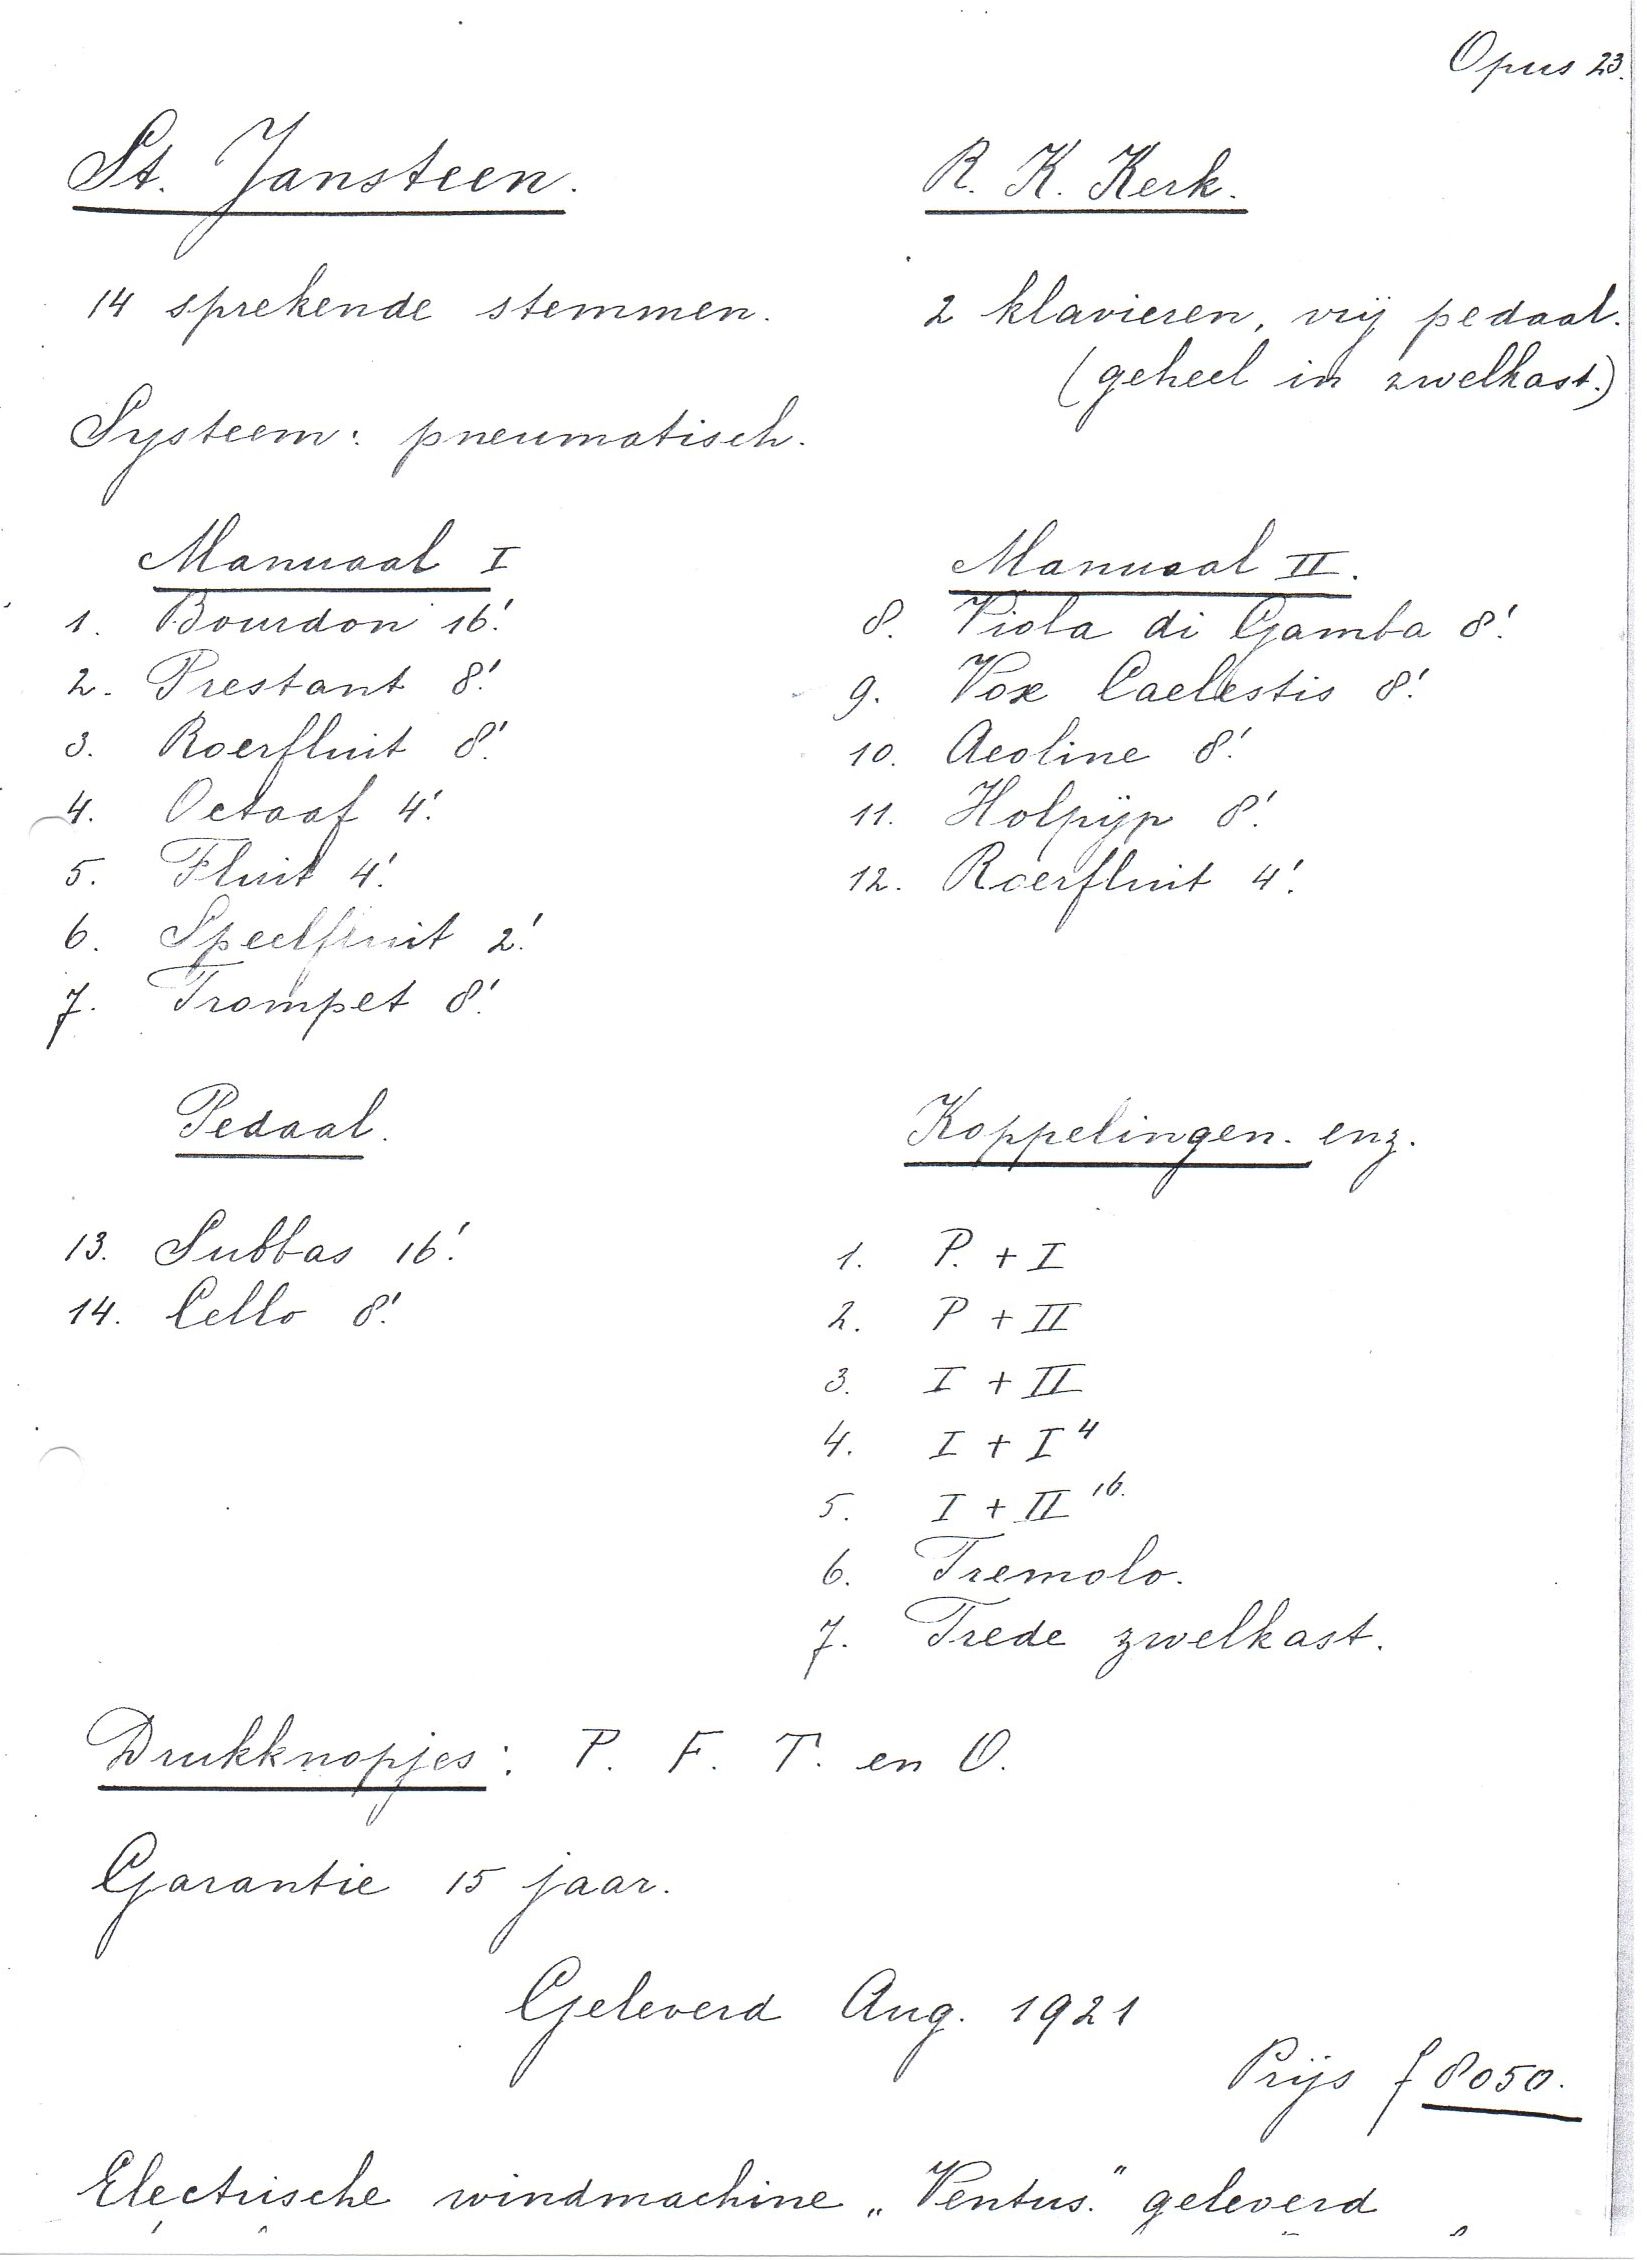 Opus 23.
St. Jansteen.
R. K. Kerk.
14 sprekende stemmen.
2 klavieren, vrij pedaal.
(geheel in zwelkast.)
Systeem: pneumatisch.
Manuaal I
1. Bourdon 16'.
2. Prestant 8'.
3. Roerfluit 8'.
4. Octaaf 4'.
5. Fluit 4'.
6. Speelfluit 2'.
7. Trompet 8'.
Manuaal II.
8. Viola di Gamba 8'.
9. Vox Caelestis 8'.
10. Aeoline 8'.
11. Holpijp 8'.
12. Roerfluit 4'.
Pedaal.
13. Subbas 16'.
14. Cello 8'.
Koppelingen. enz.
1. P. + I
2. P + II
3. I + II
4. I + I 4
5. I + II 16.
6. Tremolo.
7. Trede zwelkast.
Drukknopjes: P. F. T. en O.
Garantie 15 jaar.
Geleverd Aug. 1921
Prijs f 8050.
Electrische windmachine „Ventus.” geleverd